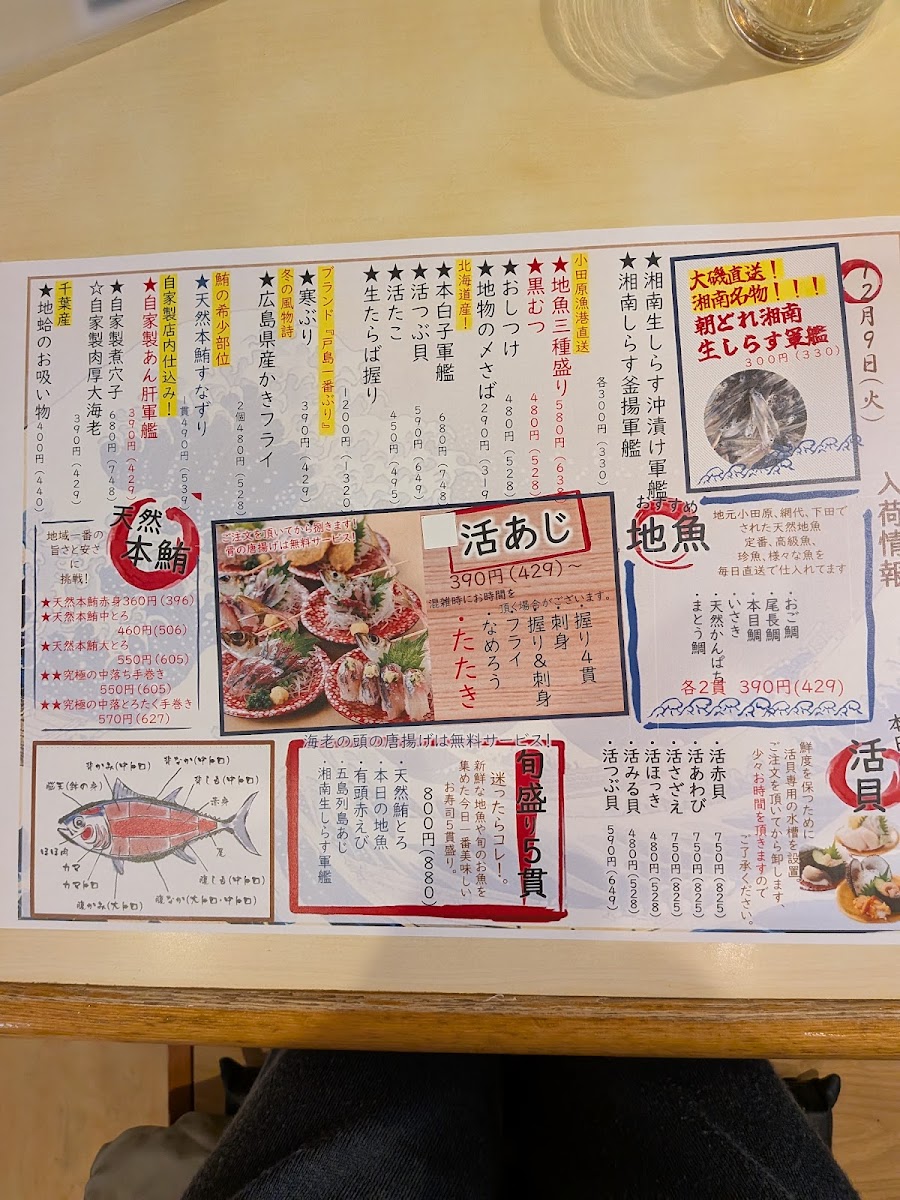 12月9日(火)
入荷情報
大磯直送!
湘南名物!!!
朝どれ湘南
生しらす軍艦
300円(330)
★湘南生しらす沖漬け軍艦
★湘南しらす釜揚軍艦
各300円(330)
小田原漁港直送
★地魚三種盛り 580円(638)
★黒むつ 480円(528)
★おしつけ 480円(528)
★地物の〆さば 290円(319)
北海道産!
★本白子軍艦 680円(748)
★活つぶ貝 590円(649)
★活たこ 450円(495)
★生たらば握り 1200円(1320)
ブランド『戸島一番ぶり』
★寒ぶり 390円(429)
冬の風物詩
★広島県産かきフライ
2個480円(528)
鮪の希少部位
★天然本鮪すなずり
一貫490円(539)
自家製店内仕込み!
★自家製あん肝軍艦 390円(429)
★自家製煮穴子 680円(748)
☆自家製肉厚大海老 390円(429)
千葉産
★地蛤のお吸い物 400円(440)
おすすめ
地魚
地元小田原、網代、下田で
された天然地魚
定番、高級魚、
珍魚、様々な魚を
毎日直送で仕入れてます
・おご鯛
・尾長鯛
・本目鯛
・いさき
・天然かんぱち
・まとう鯛
各2貫 390円(429)
ご注文を頂いてから捌きます!
骨の唐揚げは無料サービス!
活あじ
390円(429)~
混雑時にお時間を
頂く場合がございます。
・握り4貫
・刺身
・握り&刺身
・フライ
・なめろう
・たたき
天然
本鮪
地域一番の
旨さと安さ
に
挑戦!
★天然本鮪赤身360円(396)
★天然本鮪中とろ
460円(506)
★天然本鮪大とろ
550円(605)
★★究極の中落ち手巻き
550円(605)
★★究極の中落とろたく手巻き
570円(627)
活貝
鮮度を保つために
活貝専用の水槽を設置
ご注文を頂いてから卸します、
少々お時間を頂きますので
ご了承ください。
・活赤貝 750円(825)
・活あわび 750円(825)
・活さざえ 750円(825)
・活ほっき 480円(528)
・活みる貝 480円(528)
・活つぶ貝 590円(649)
海老の頭の唐揚げは無料サービス!
旬盛り5貫
迷ったらコレ!。
新鮮な地魚や旬のお魚を
集めた今日一番美味しい
お寿司5貫盛り。
800円(880)
・天然鮪とろ
・本日の地魚
・有頭赤えび
・五島列島あじ
・湘南生しらす軍艦
背かみ(中トロ)
背なか(中トロ)
背しも(中トロ)
赤身
尾
ほほ肉
カマ
カマトロ
腹かみ(大トロ)
腹なか(大トロ・中トロ)
腹しも(中トロ)